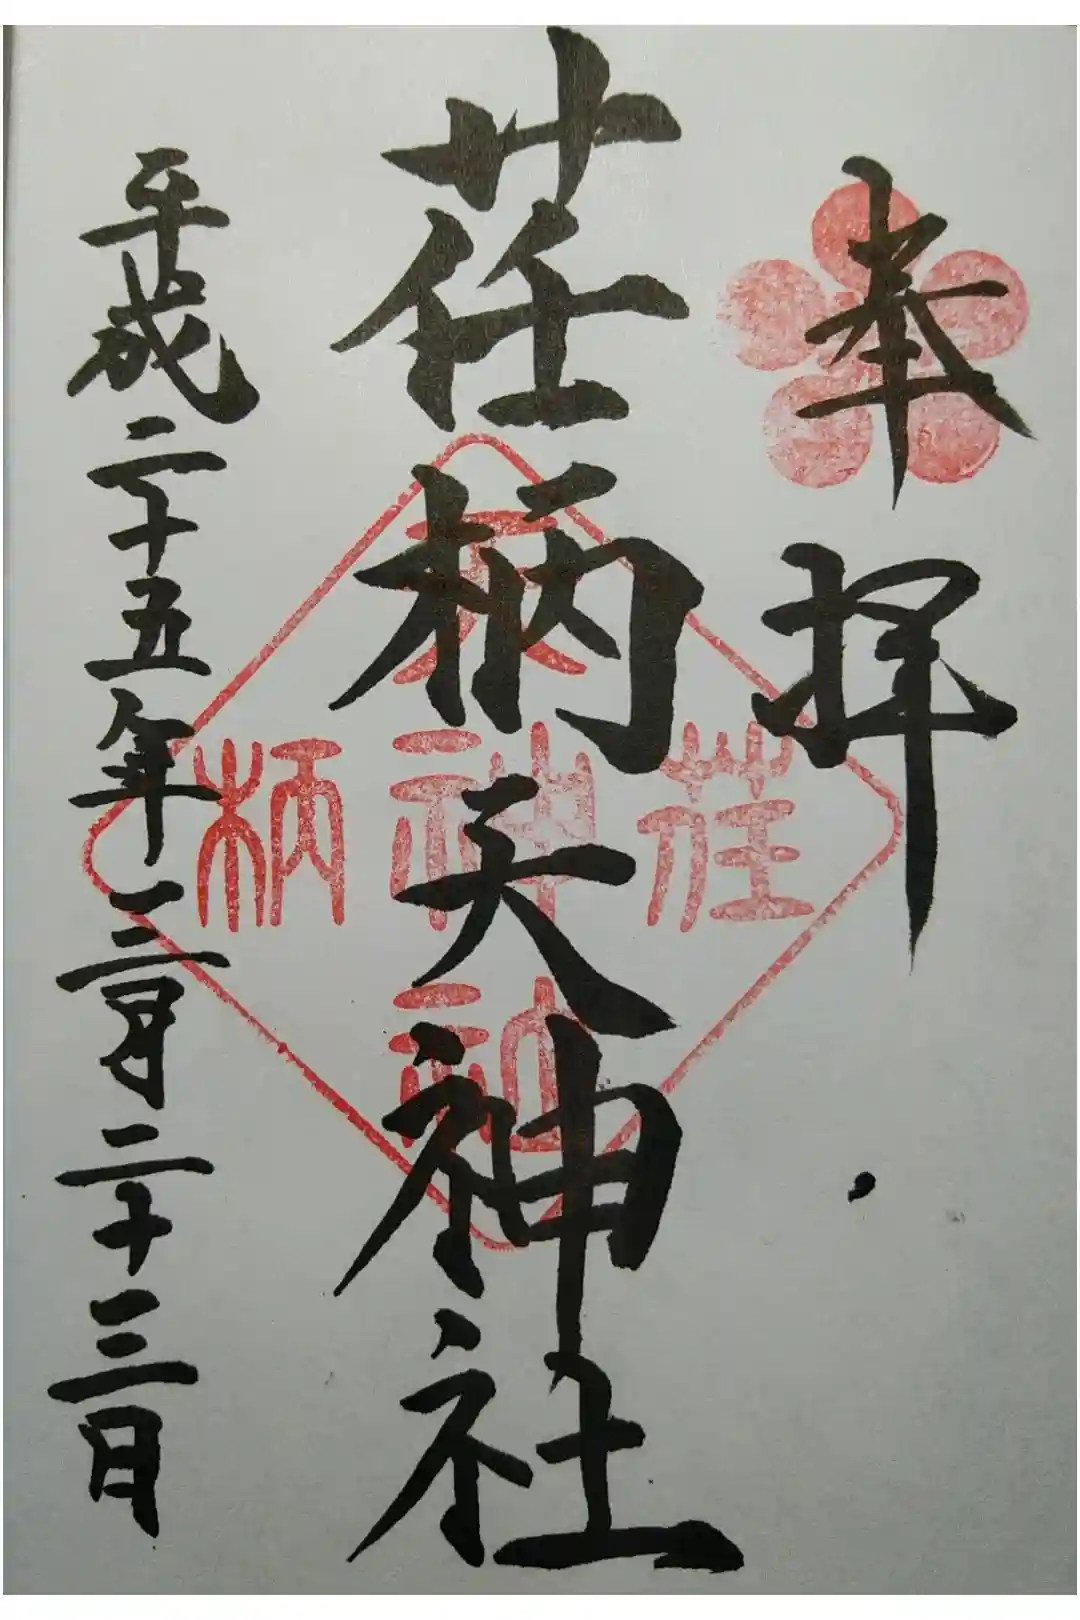 奉拝
荏柄天神社
平成二十五年三月二十三日
荏柄天神社